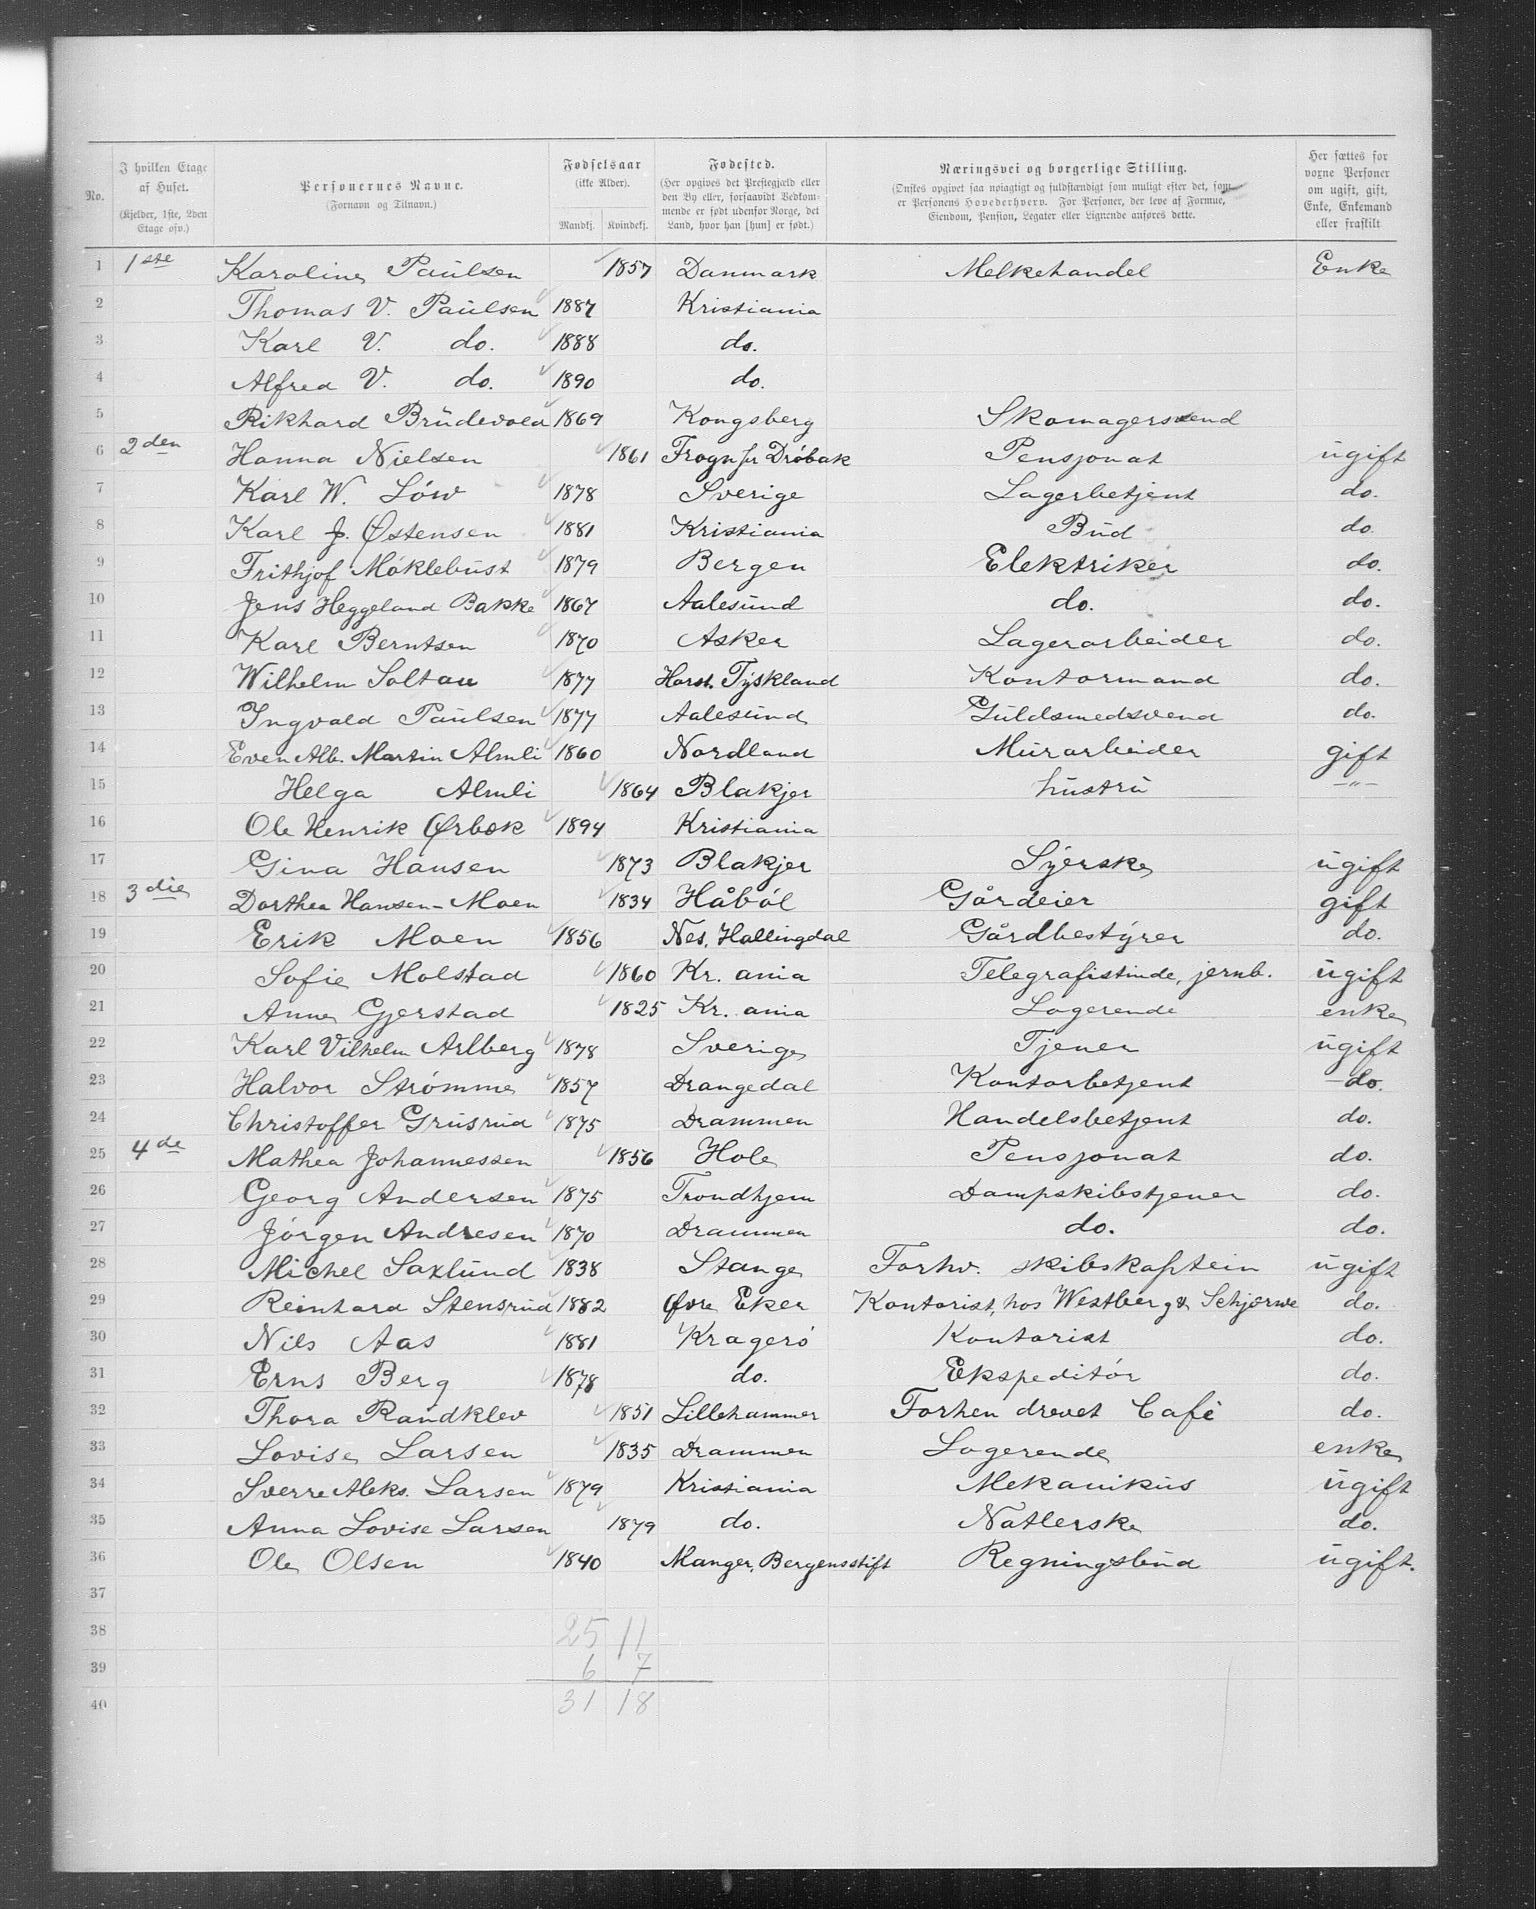 No. I hvilken Etage af Huset. (Kjelder, 1ste, 2den Etage osv.) Personernes Navne. (Fornavn og Tilnavn.) Fødselsaar (ikke Alder). Mandkj. Kvindekj. Fødested. (Her opgives det Prestegjæld eller den By eller, forsaavidt Vedkommende er født udenfor Norge, det Land, hvor han [hun] er født.) Næringsvei og borgerlige Stilling. (Ønskes opgivet saa nøiagtigt og fuldstændigt som muligt efter det, som er Personens Hovederhverv. For Personer, der leve af Formue, Eiendom, Pension, Legater eller Lignende anføres dette. Her sættes for voxne Personer om ugift, gift, Enke, Enkemand eller fraskilt
1 1ste Karoline Paulsen 1857 Danmark Melkehandel Enke
2 Thomas V. Paulsen 1887 Kristiania
3 Karl V. do. 1888 do.
4 Alfred V. do. 1890 do.
5 Rikhard Brudevold 1869 Kongsberg Skomagersvend
6 2den Hanna Nielsen 1861 Frogn pr Drøbak Pensjonat ugift
7 Karl W. Löw 1878 Sverige Lagerbetjent do.
8 Karl J. Østensen 1881 Kristiania Bud do.
9 Frithjof Möklebust 1879 Bergen Elektriker do.
10 Jens Heggeland Bakke 1867 Aalesund do. do.
11 Karl Berntsen 1870 Asker Lagerarbeider do.
12 Wilhelm Soltau 1877 Horst. Tyskland Kontormand do.
13 Ingvald Paulsen 1877 Aalesund Guldsmedsvend do.
14 Even Alb. Martin Almli 1860 Nordland Murarbeider gift
15 Helga Almli 1864 Blakjer hustru —"—
16 Ole Henrik Ørbæk 1894 Kristiania
17 Gina Hansen 1873 Blakjer Syerske ugift
18 3die Dorthea Hansen-Moen 1834 Håböl Gårdeier gift
19 Erik Moen 1856 Nes, Hallingdal Gårdbestyrer do.
20 Sofie Molstad 1860 Kr. ania Telegrafistinde, jernb. ugift
21 Anne Gjerstad 1825 Kr. ania Logerende enke
22 Karl Vilhelm Arlberg 1878 Sverige Tjener ugift
23 Halvor Strømme 1857 Drangedal Kontorbetjent do.
24 Christoffer Grusrud 1875 Drammen Handelsbetjent do.
25 4de Mathea Johannessen 1856 Hole Pensjonat do.
26 Georg Andersen 1875 Trondhjem Dampskibstjener do.
27 Jörgen Andresen 1870 Drammen do. do.
28 Michel Saxlund 1838 Stange Forhv. skibskaptein ugift
29 Reinhard Stensrud 1882 Øvre Eker Kontorist, hos Westberg & Schjørwe do.
30 Nils Aas 1881 Kragerö Kontorist do.
31 Erns Berg 1878 do. Ekspeditör do.
32 Thora Randklev 1851 Lillehammer Forhen drevet Café do.
33 Lovise Larsen 1835 Drammen Logerende enke
34 Sverre Aleks. Larsen 1879 Kristiania Mekanikus ugift
35 Anna Lovise Larsen 1879 do. Natlerske do.
36 Ole Olsen 1840 Manger, Bergensstift Regningsbud ugift.
37
38 25 11
39 6 7
40 31 18